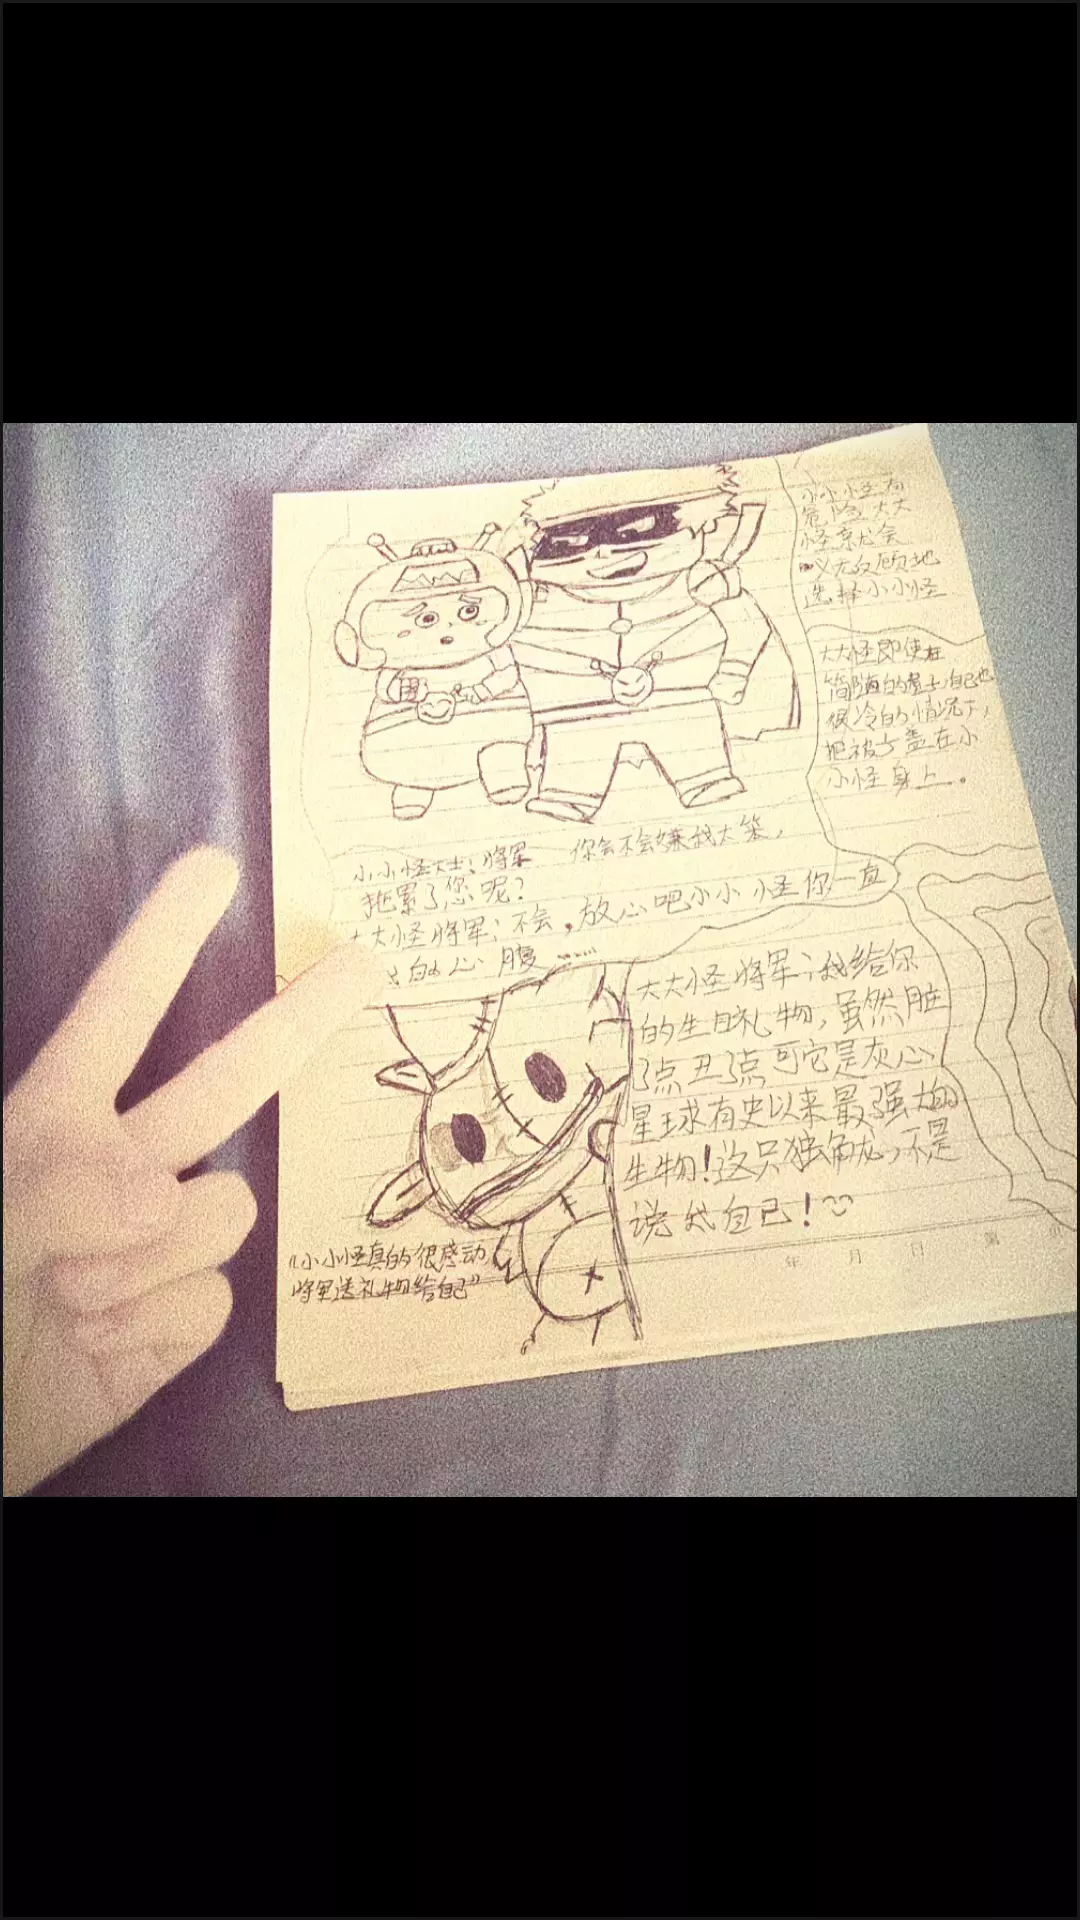 小小怪有
危险大大
怪总会
义无反顾地
选择小小怪
大大怪即使在
简陋的屋子,自己也
很冷的情况下,
把被子盖在小
小怪身上。
小小怪下士:将军 你会不会嫌我太笨,
拖累了您呢?
大怪将军:不会,放心吧小小怪你一直
的心腹……
大大怪将军:我给你
的生日礼物,虽然脏
了点丑了点可它是灰心
星球有史以来最强大的
生物!这只独角龙,不是
说我自己!
年 月 日 第 页
"小小怪真的很感动,
将军送礼物给自己"